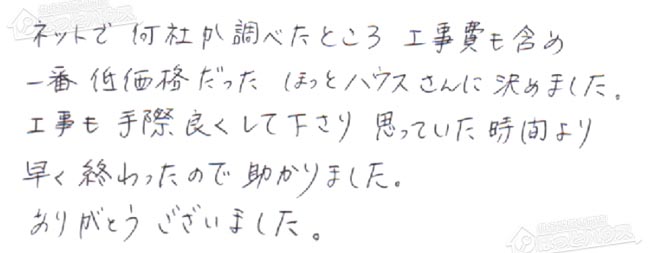 ネットで 何社か調べたところ 工事費も含め
一番 低価格だった ほっとハウスさんに 決めました。
工事も 手際良くして下さり 思っていた時間より
早く 終わったので 助かりました。
ありがとう ございました。